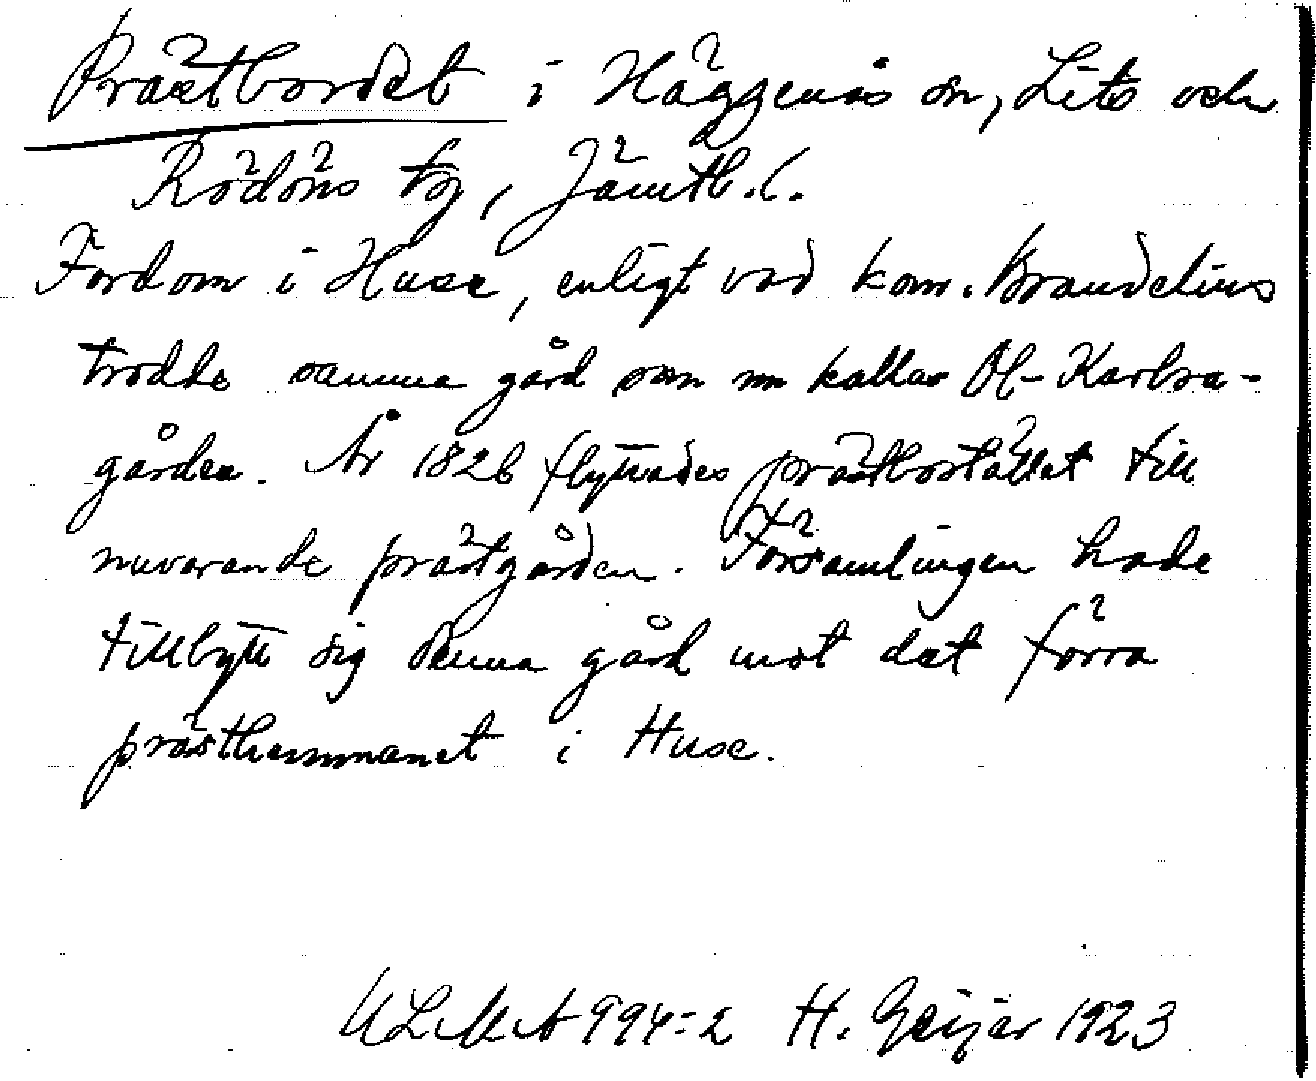 Prästbordet i Häggenås sn, Lits och
Rödöns tg, Jämtl. l.
Fordom i Huse, enligt vad kom. Brandelius
trodde samma gård som nu kallas Ol-Karlsa-
gården. År 1826 flyttades prästbostället till
nuvarande prästgården. Församlingen hade
tillbytt sig denna gård mot det förra
prästhemmanet i Huse.
994:2 H. Geijer 1923